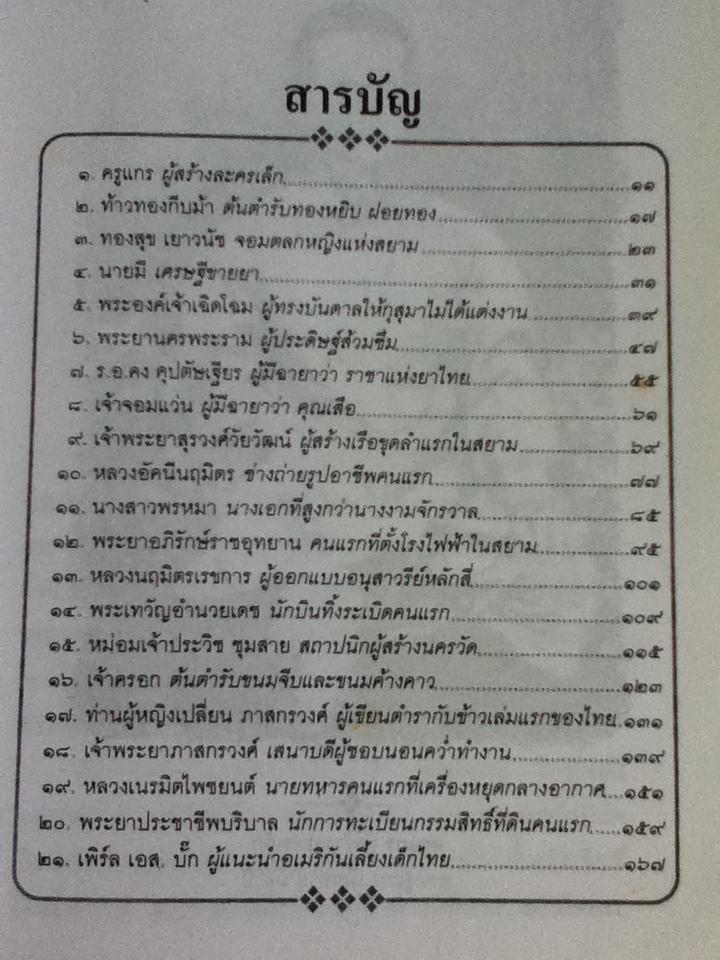 สารบัญ
๑. ครูแกร ผู้สร้างละครเล็ก ๑๑
๒. ท้าวทองกีบม้า ต้นตำรับทองหยิบ ฝอยทอง ๑๗
๓. ทองสุข เยาวนัช จอมตลกหญิงแห่งสยาม ๒๓
๔. นายมี เศรษฐีขายยา ๓๑
๕. พระองค์เจ้าเฉิดโฉม ผู้ทรงบันดาลให้กุสุมาไม่ได้แต่งงาน ๓๙
๖. พระยานครพระราม ผู้ประดิษฐ์ส้วมซึม ๔๗
๗. ร.อ.คง คุปตัษเฐียร ผู้มีฉายาว่า ราชาแห่งยาไทย ๕๕
๘. เจ้าจอมแว่น ผู้มีฉายาว่า คุณเสือ ๖๑
๙. เจ้าพระยาสุรวงศ์วัยวัฒน์ ผู้สร้างเรือขุดลำแรกในสยาม ๖๙
๑๐. หลวงอัคนีนฤมิตร ช่างถ่ายรูปอาชีพคนแรก ๗๗
๑๑. นางสาวพรหมา นางเอกที่สูงกว่านางงามจักรวาล ๘๕
๑๒. พระยาอภิรักษ์ราชอุทยาน คนแรกที่ตั้งโรงไฟฟ้าในสยาม ๙๕
๑๓. หลวงนฤมิตรเรขการ ผู้ออกแบบอนุสาวรีย์หลักสี่ ๑๐๑
๑๔. พระเทวัญอำนวยเดช นักบินทิ้งระเบิดคนแรก ๑๐๙
๑๕. หม่อมเจ้าประวิช ชุมสาย สถาปนิกผู้สร้างนครวัด ๑๑๕
๑๖. เจ้าครอก ต้นตำรับขนมจีบและขนมค้างคาว ๑๒๓
๑๗. ท่านผู้หญิงเปลี่ยน ภาสกรวงศ์ ผู้เขียนตำรากับข้าวเล่มแรกของไทย ๑๓๑
๑๘. เจ้าพระยาภาสกรวงศ์ เสนาบดีผู้ชอบนอนคว่ำทำงาน ๑๓๙
๑๙. หลวงเนรมิตไพชยนต์ นายทหารคนแรกที่เครื่องหยุดกลางอากาศ ๑๕๑
๒๐. พระยาประชาชีพบริบาล นักการทะเบียนกรรมสิทธิ์ที่ดินคนแรก ๑๕๙
๒๑. เพิร์ล เอส. บั๊ก ผู้แนะนำอเมริกันเลี้ยงเด็กไทย ๑๖๗